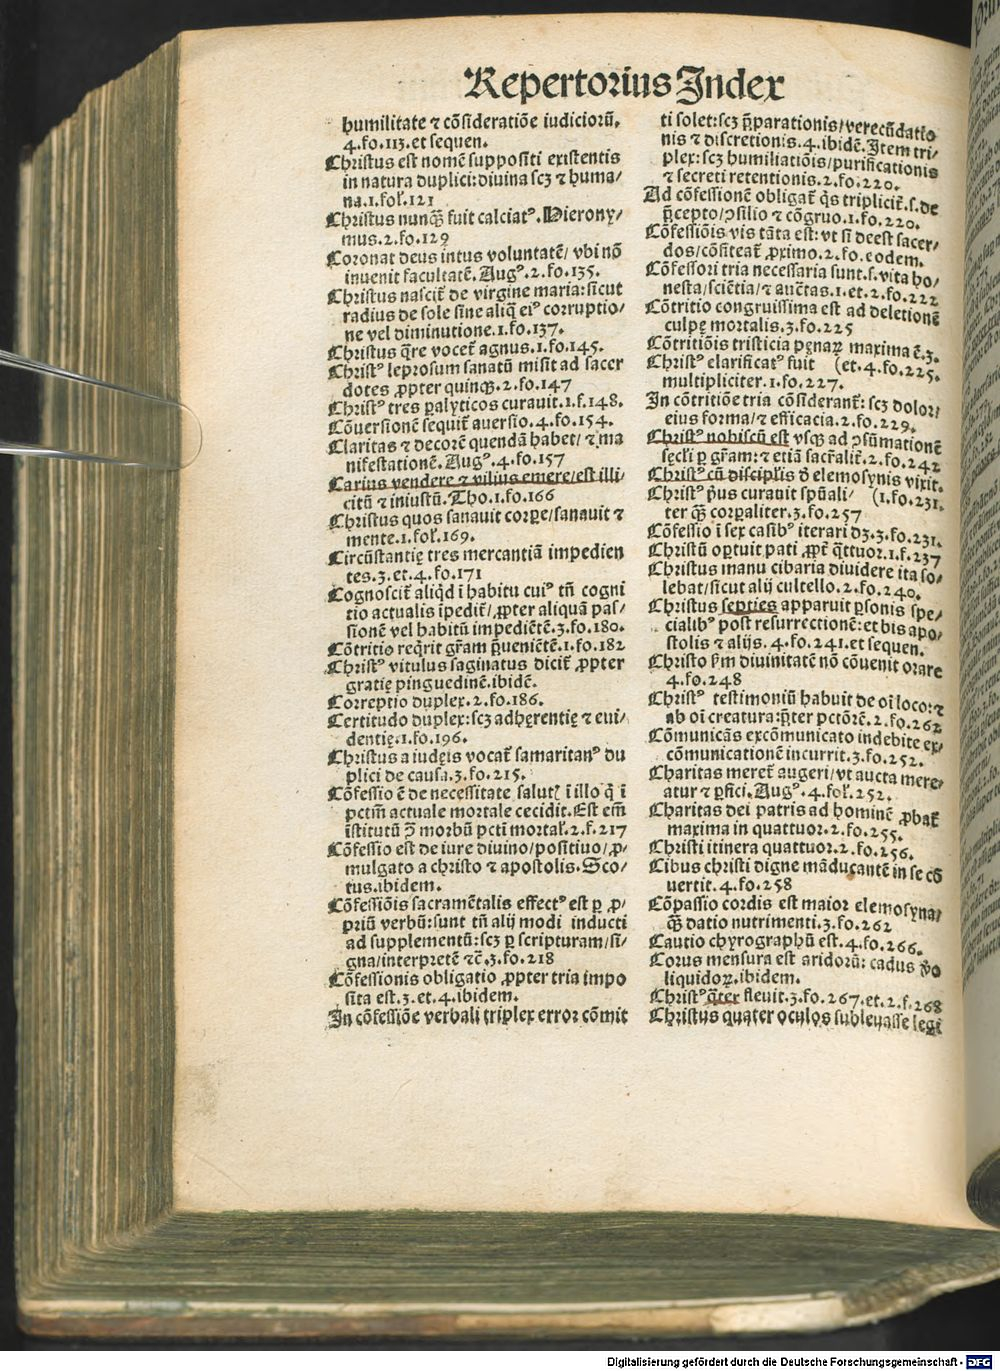 Repertorius Index
humilitate ⁊ cõsideratiõe iudiciorũ.
4.fo.113.et sequen.
Christus est nomẽ suppositi existentis
in natura duplici:diuina scꝫ ⁊ huma/
na.1.fol.121
Christus nunqꝫ fuit calciatꝰ.Hierony/
mus.2.fo.129
Coronat deus intus voluntatẽ/ vbi nõ
inuenit facultatẽ.Augꝰ.2.fo.135.
Christus nascit̃ de virgine maria:sicut
radius de sole sine aliq̃ eiꝰ corruptio/
ne vel diminutione.1.fo.137.
Christus q̃re vocet̃ agnus.1.fo.145.
Christꝰ leprosum sanatũ misit ad sacer
dotes ꝓpter quinqꝫ.2.fo.147
Christꝰ tres paralyticos curauit.1.f.148.
Cõuersionẽ sequit̃ auersio.4.fo.154.
Claritas ⁊ decorẽ quendã habet/ ⁊ ma
nifestationẽ.Augꝰ.4.fo.157
Carius vendere ⁊ vilius emere/est illi/
citũ ⁊ iniustũ.Tho.1.fo.166
Christus quos sanauit corꝑe/sanauit ⁊
mente.1.fol.169.
Circũstantię tres mercantiã impedien
tes.3.et.4.fo.171
Cognoscit̃ aliqd ĩ habitu cuiꝰ tñ cogni
tio actualis ĩpedit̃/ꝓpter aliquã pas/
sionẽ vel habitũ impediẽtẽ.3.fo.180.
Cõtritio reqrit gr̃am p̃ueniẽtẽ.1.fo.182
Christꝰ vitulus saginatus dicit̃ ꝓpter
gratię pinguedinẽ.ibidẽ.
Correptio duplex.2.fo.186.
Certitudo duplex:scꝫ adhęrentię ⁊ eui/
dentię.1.fo.196.
Christus a iudęis vocat̃ samaritanꝰ du
plici de causa.3.fo.215.
Cõfessio ẽ de necessitate salutꝭ ĩ illo q̃ ĩ
pctm̃ actuale mortale cecidit.Est em̃
ĩstitutũ ↄ̃ morbũ pcti mortal̃.2.f.217
Cõfessio est de iure diuino/positiuo/ꝓ/
mulgato a christo ⁊ apostolis.Sco/
tus.ibidem.
Cõfessiõis sacramẽtalis effectꝰ est ꝑ ꝓ/
priũ verbũ:sunt tñ alij modi inducti
ad supplementũ:scꝫ ꝑ scripturam/si/
gna/interpretẽ ⁊c̃.3.fo.218
Cõfessionis obligatio ꝓpter tria impo
sita est.3.et.4.ibidem.
In cõfessiõe verbali triplex error cõmit
ti solet:scꝫ p̃parationis/verecũdatio
nis ⁊ discretionis.4.ibidẽ.Item tri/
plex:scꝫ humiliatiõis/purificationis
⁊ secreti retentionis.2.fo.220.
Ad cõfessionẽ obligat̃ q̃s triplicit̃.s.de
p̃cepto/ↄsilio ⁊ cõgruo.1.fo.220.
Cõfessiõis vis tãta est:vt si deest sacer/
dos/cõfiteat̃ ꝓximo.2.fo.eodem.
Cõfessori tria necessaria sunt.s.vita ho/
nesta/sciẽtia/⁊ auc̃tas.1.et.2.fo.222
Cõtritio congruissima est ad deletionẽ
culpę mortalis.3.fo.225
Cõtritiõis tristicia pęnaꝝ maxima ẽ.3.
Christꝰ clarificatꝰ fuit (et.4.fo.225.
multipliciter.1.fo.227.
In cõtritiõe tria cõsiderant̃: scꝫ dolor/
eius forma/⁊ efficacia.2.fo.229.
Christꝰ nobiscũ est vsqꝫ ad ↄsũmationẽ
sęcl̃i ꝑ gr̃am:⁊ etiã sacr̃alit̃.2.fo.242
Christꝰ cũ discipl̃is d̃ elemosynis vixit.
Christꝰ p̃us curauit spũali/ (1.fo.231.
ter qꝫ corꝑaliter.3.fo.257
Cõfessio ĩ sex casibꝰ iterari dꝫ.3.fo.231.
Christũ oportuit pati ꝓpt̃ q̃ttuor.1.f.237
Christus manu cibaria diuidere ita so/
lebat/sicut alij cultello.2.fo.240.
Christus septies apparuit ꝑsonis spe/
cialibꝰ post resurrectionẽ:et bis apo/
stolis ⁊ alijs. 4.fo.241.et sequen.
Christo ẜm diuinitatẽ nõ cõuenit orare
4.fo.248
Christꝰ testimoniũ habuit de oĩ loco:⁊
ab oĩ creatura:p̃ter pctõrẽ.2.fo.262
Cõmunicãs excõmunicato indebite ex/
cõmunicationẽ incurrit.3.fo.252.
Charitas meret̃ augeri/vt aucta mere/
atur ⁊ ꝑfici.Augꝰ.4.fol.252.
Charitas dei patris ad hominẽ ꝓbat̃
maxima in quattuor.2.fo.255.
Christi itinera quattuor.2.fo.256.
Cibus christi digne mãducantẽ in se cõ
uertit.4.fo.258
Cõpassio cordis est maior elemosyna/
qꝫ datio nutrimenti.3.fo.262
Cautio chyrographũ est.4.fo.266.
Corus mensura est aridorũ: cadus v̾o
liquidoꝝ.ibidem.
Christꝰ q̃ter fleuit.3.fo.267.et.2.f.268
Christus quater oculos subleuasse legi
Digitalisierung gefördert durch die Deutsche Forschungsgemeinschaft - DFG